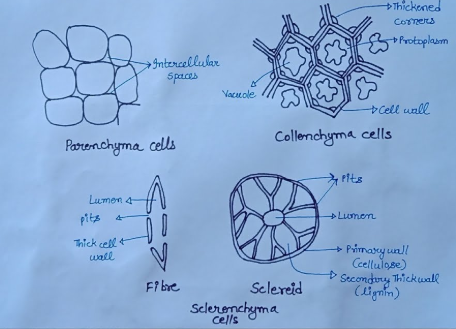 Intercellular
spaces
Parenchyma cells
Thickened
corners
Protoplasm
Vacuole
Cell wall
Collenchyma cells
Lumen
pits
Thick cell
wall
Fibre
Pits
Lumen
Primary wall
(cellulose)
Secondary Thick wall
(lignin)
Sclereid
Sclerenchyma
cells